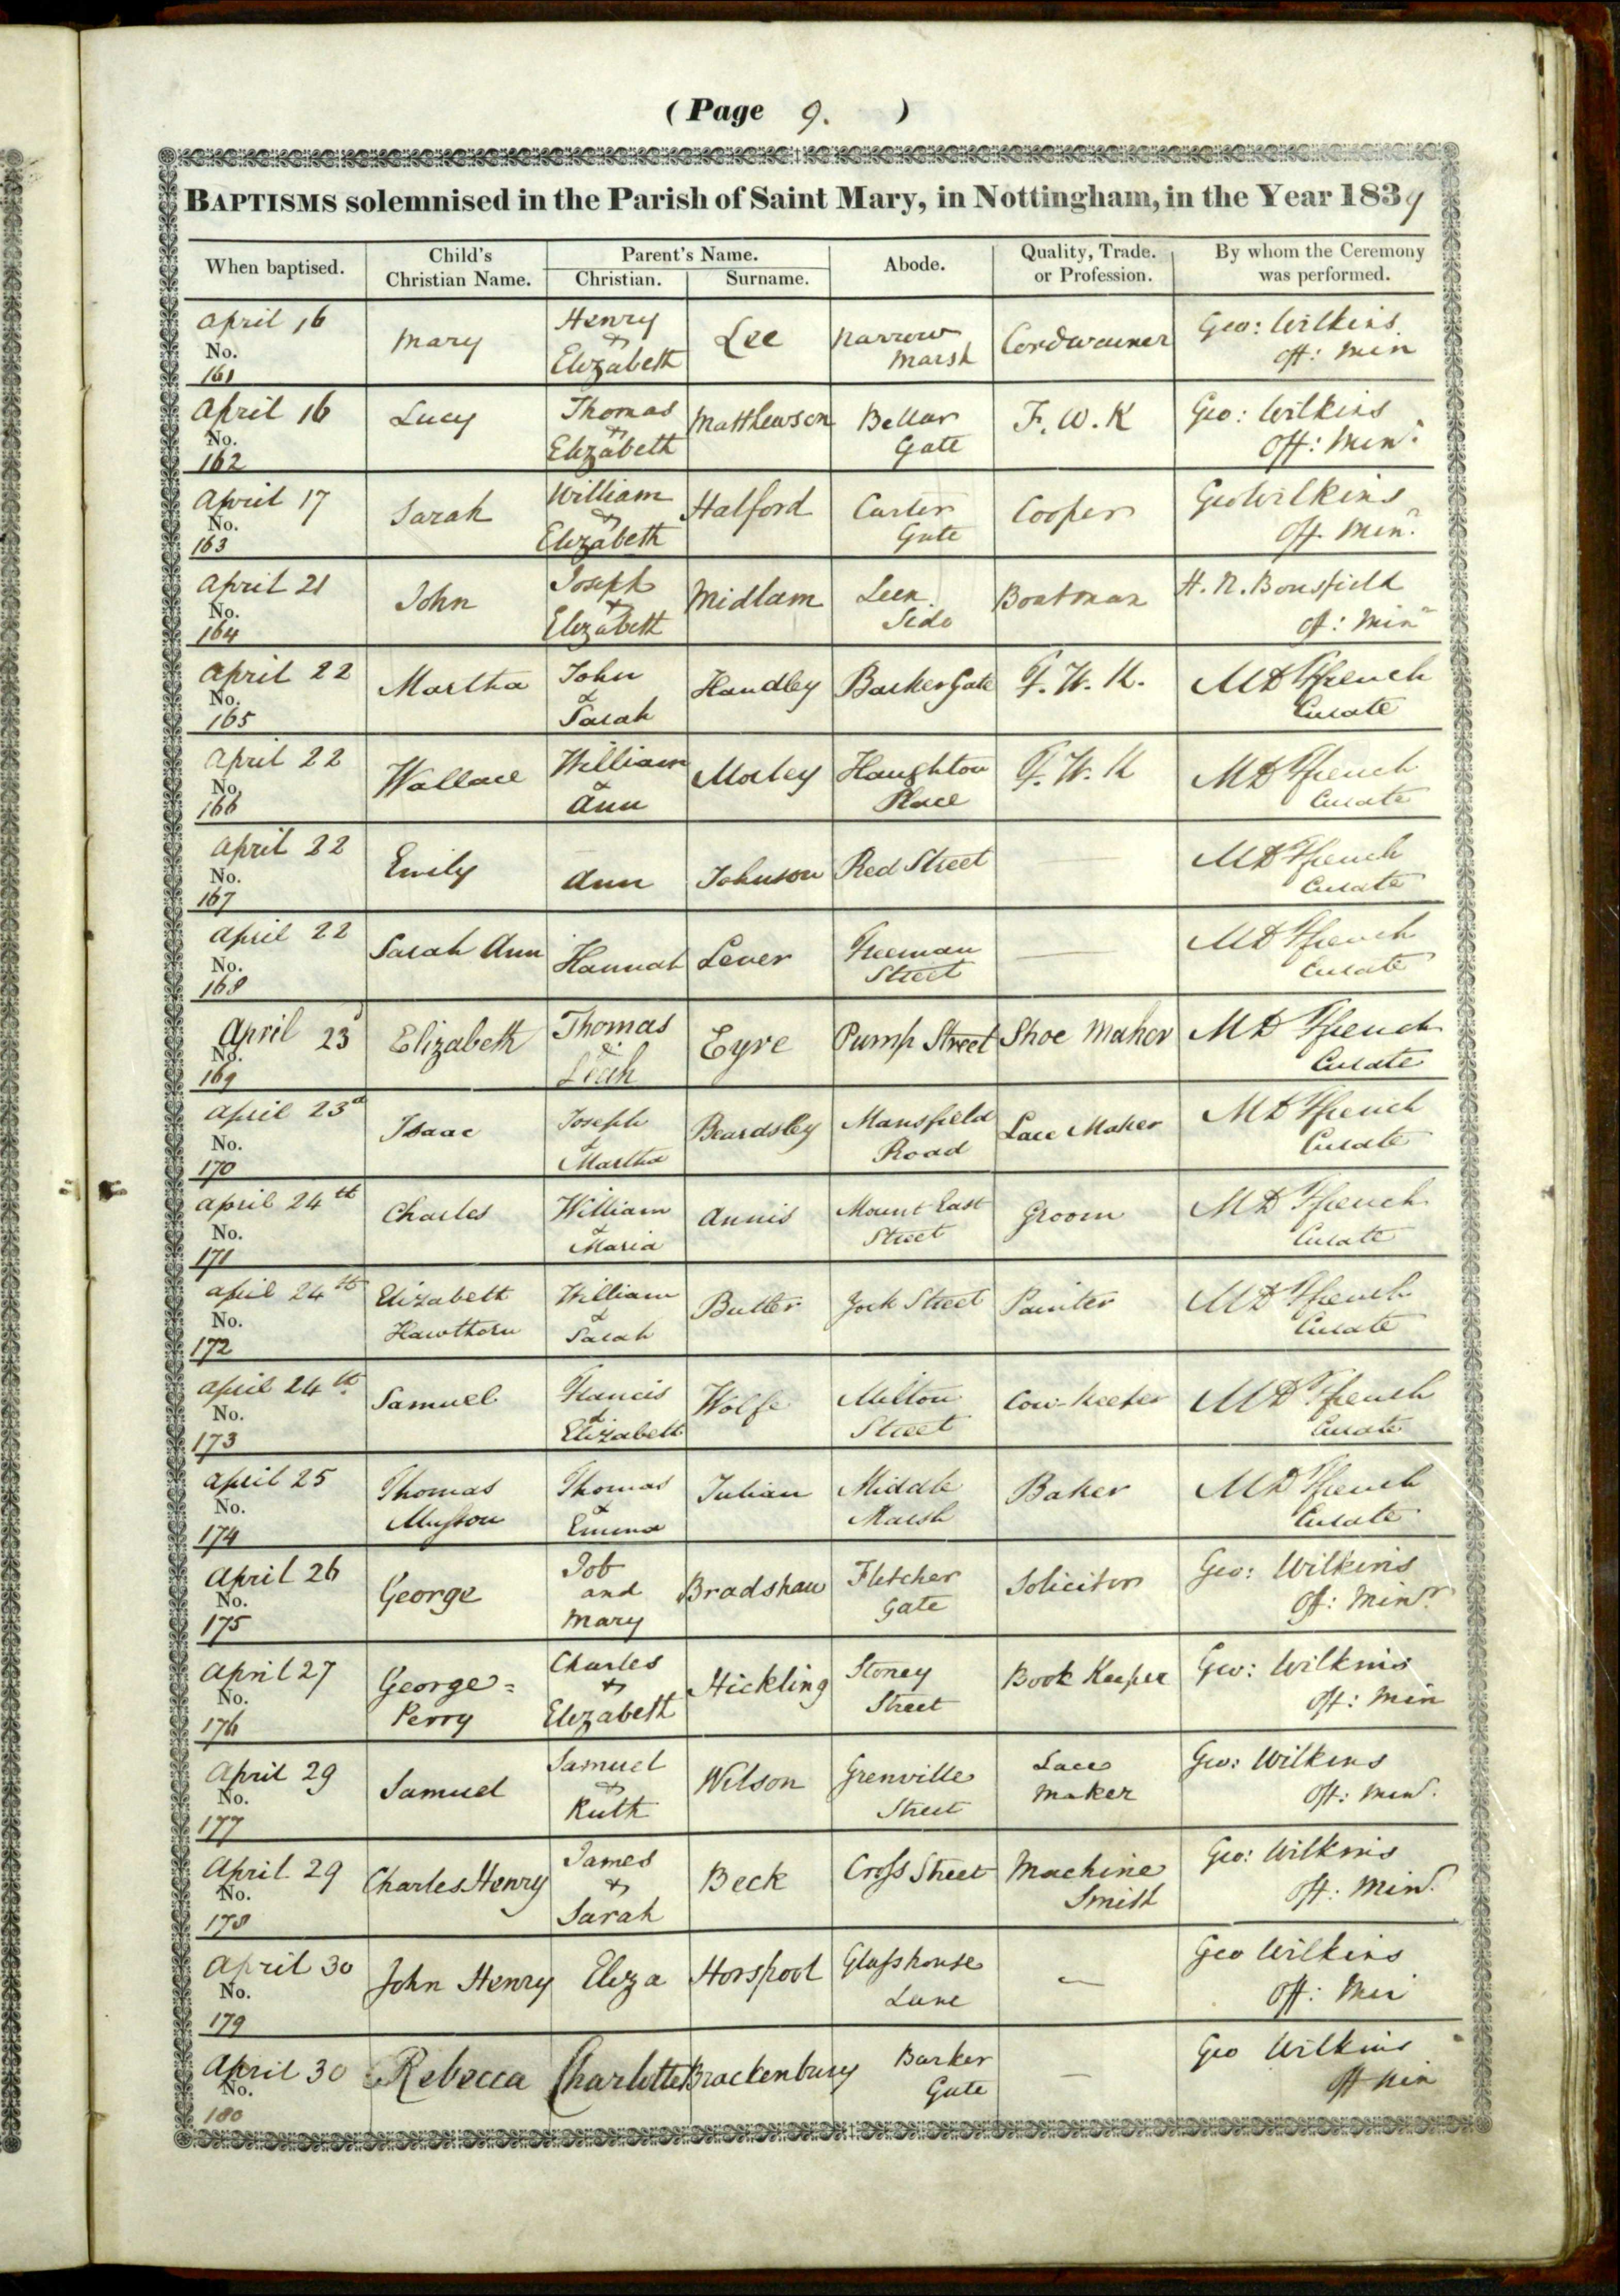 ( Page 9. )
BAPTISMS solemnised in the Parish of Saint Mary, in Nottingham, in the Year 1839
When baptised. Child's Christian Name. Parent's Name. Christian. Surname. Abode. Quality, Trade. or Profession. By whom the Ceremony was performed.
April 16 No. 161 Mary Henry & Elizabeth Lee Narrow Marsh Cordwainer Geo: Wilkins off: Min
April 16 No. 162 Lucy Thomas & Elizabeth Matthewson Bellar Gate F. W. K Geo: Wilkins Off: Minr
April 17 No. 163 Sarah William & Elizabeth Halford Carter Gate Cooper Geo Wilkins Off. Minr
April 21 No. 164 John Joseph & Elizabeth Midlam Leen Side Boatman H. N. Bousfield of: Minr
April 22 No. 165 Martha John & Sarah Handley Barker Gate F. W. K. M D Ffrench Curate
April 22 No. 166 Wallace William & Ann Morley Houghton Place F. W. K M D Ffrench Curate
April 22 No. 167 Emily Ann Johnson Red Street — M D Ffrench Curate
April 22 No. 168 Sarah Ann Hannah Lever Freeman Street — M D Ffrench Curate
April 23d No. 169 Elizabeth Thomas & Leah Eyre Pump Street Shoe Maker M D Ffrench Curate
April 23d No. 170 Isaac Joseph & Martha Beardsley Mansfield Road Lace Maker M D Ffrench Curate
April 24th No. 171 Charles William & Maria Annis Mount East Street Groom M D Ffrench Curate
April 24th No. 172 Elizabeth Hawthorn William & Sarah Butler York Street Painter M D Ffrench Curate
April 24th No. 173 Samuel Francis & Elizabeth Wolfe Milton Street Cow-keeper M D Ffrench Curate
April 25 No. 174 Thomas Musson Thomas & Emma Julian Middle Marsh Baker M D Ffrench Curate
April 26 No. 175 George Job and Mary Bradshaw Fletcher Gate Solicitor Geo: Wilkins Off: Minr
April 27 No. 176 George= Perry Charles & Elizabeth Hickling Stoney Street Book Keeper Geo: Wilkins Off: Min
April 29 No. 177 Samuel Samuel & Ruth Wilson Grenville Street Lace Maker Geo: Wilkins Off: Minr.
April 29 No. 178 Charles Henry James & Sarah Beck Cross Street Machine Smith Geo: Wilkins Off: Minr.
April 30 No. 179 John Henry Eliza Horspool Glasshouse Lane — Geo Wilkins Off: Min
April 30 No. 180 Rebecca Charlotte Brackenbury Barker Gate — Geo Wilkins Off Min